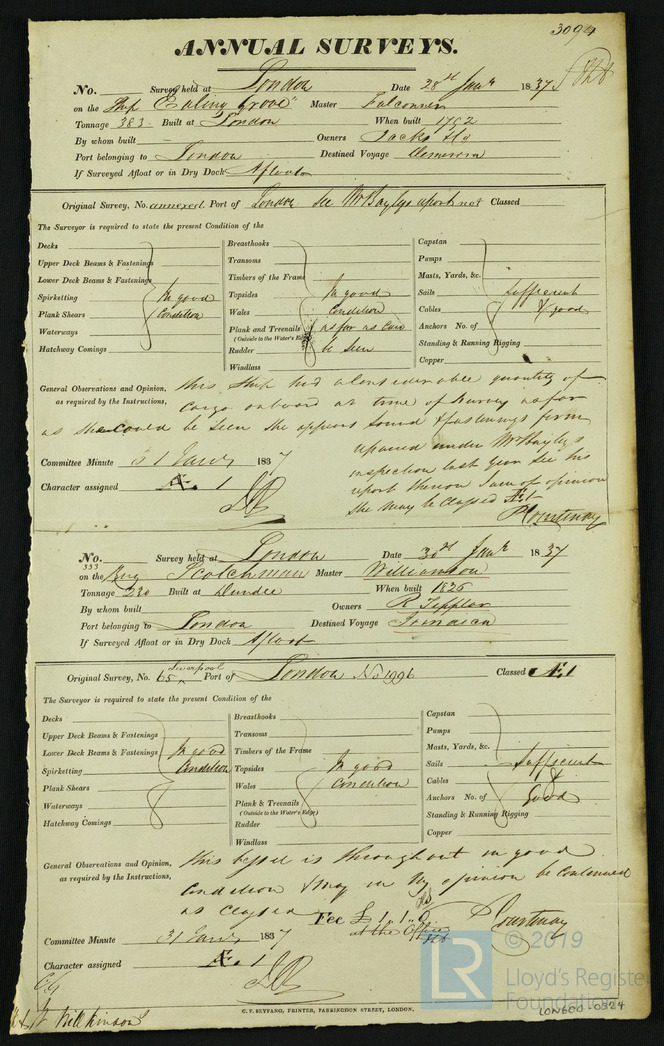 3094
ANNUAL SURVEYS.
No. Survey held at London Date 28th Janry 1837
on the Ship "Ealing Grove" Master Falconer
Tonnage 383 Built at London When built 1792
By whom built Owners Jacks & Co
Port belonging to London Destined Voyage Demerara
If Surveyed Afloat or in Dry Dock Afloat
Original Survey, No. annexed Port of London See Mr Baylys report not Classed
The Surveyor is required to state the present Condition of the
Decks
Upper Deck Beams & Fastenings
Lower Deck Beams & Fastenings
Spirketting In good
Plank Shears Condition
Waterways
Hatchway Comings
Breasthooks
Transoms
Timbers of the Frame
Topsides In good
Wales Condition
Plank and Treenails as far as can
(Outside to the Water's Edge)
Rudder be seen
Windlass
Capstan
Pumps
Masts, Yards, &c.
Sails Sufficient
Cables & good
Anchors No. of
Standing & Running Rigging
Copper
General Observations and Opinion, this Ship had a considerable quantity of
as required by the Instructions, cargo onboard at time of Survey as far
as she could be seen she appears sound & fastenings firm
repaired under Mr Baylys
inspection last year see his
report thereon I am of opinion
she may be Classed Æ 1
P Courtenay
Committee Minute 31 Janry 1837
Character assigned Æ 1
No. 333 Survey held at London Date 30th Janry 1837
on the Brig Scotchman Master Williamson
Tonnage 220 Built at Dundee When built 1826
By whom built Owners R Tepplar
Port belonging to London Destined Voyage Jamaica
If Surveyed Afloat or in Dry Dock Afloat
Original Survey, No. 65 Liverpool Port of London No 1996 Classed Æ 1
The Surveyor is required to state the present Condition of the
Decks
Upper Deck Beams & Fastenings
Lower Deck Beams & Fastenings In good
Spirketting Condition
Plank Shears
Waterways
Hatchway Comings
Breasthooks
Transoms
Timbers of the Frame
Topsides In good
Wales Condition
Plank & Treenails
(Outside to the Water's Edge)
Rudder
Windlass
Capstan
Pumps
Masts, Yards, &c.
Sails Sufficient
Cables &
Anchors No. of Good
Standing & Running Rigging
Copper
General Observations and Opinion, this vessel is throughout in good
as required by the Instructions, Condition & may in my opinion be Continued
as Classed Fee £ 1. 1. 0 P Courtenay
at the Office
Committee Minute 31 Janry 1837
Character assigned Æ 1
C. F. SEYFANG, PRINTER, FARRINGDON STREET, LONDON.
© 2019
LR
Lloyd's Register
Foundation
LON600-0324